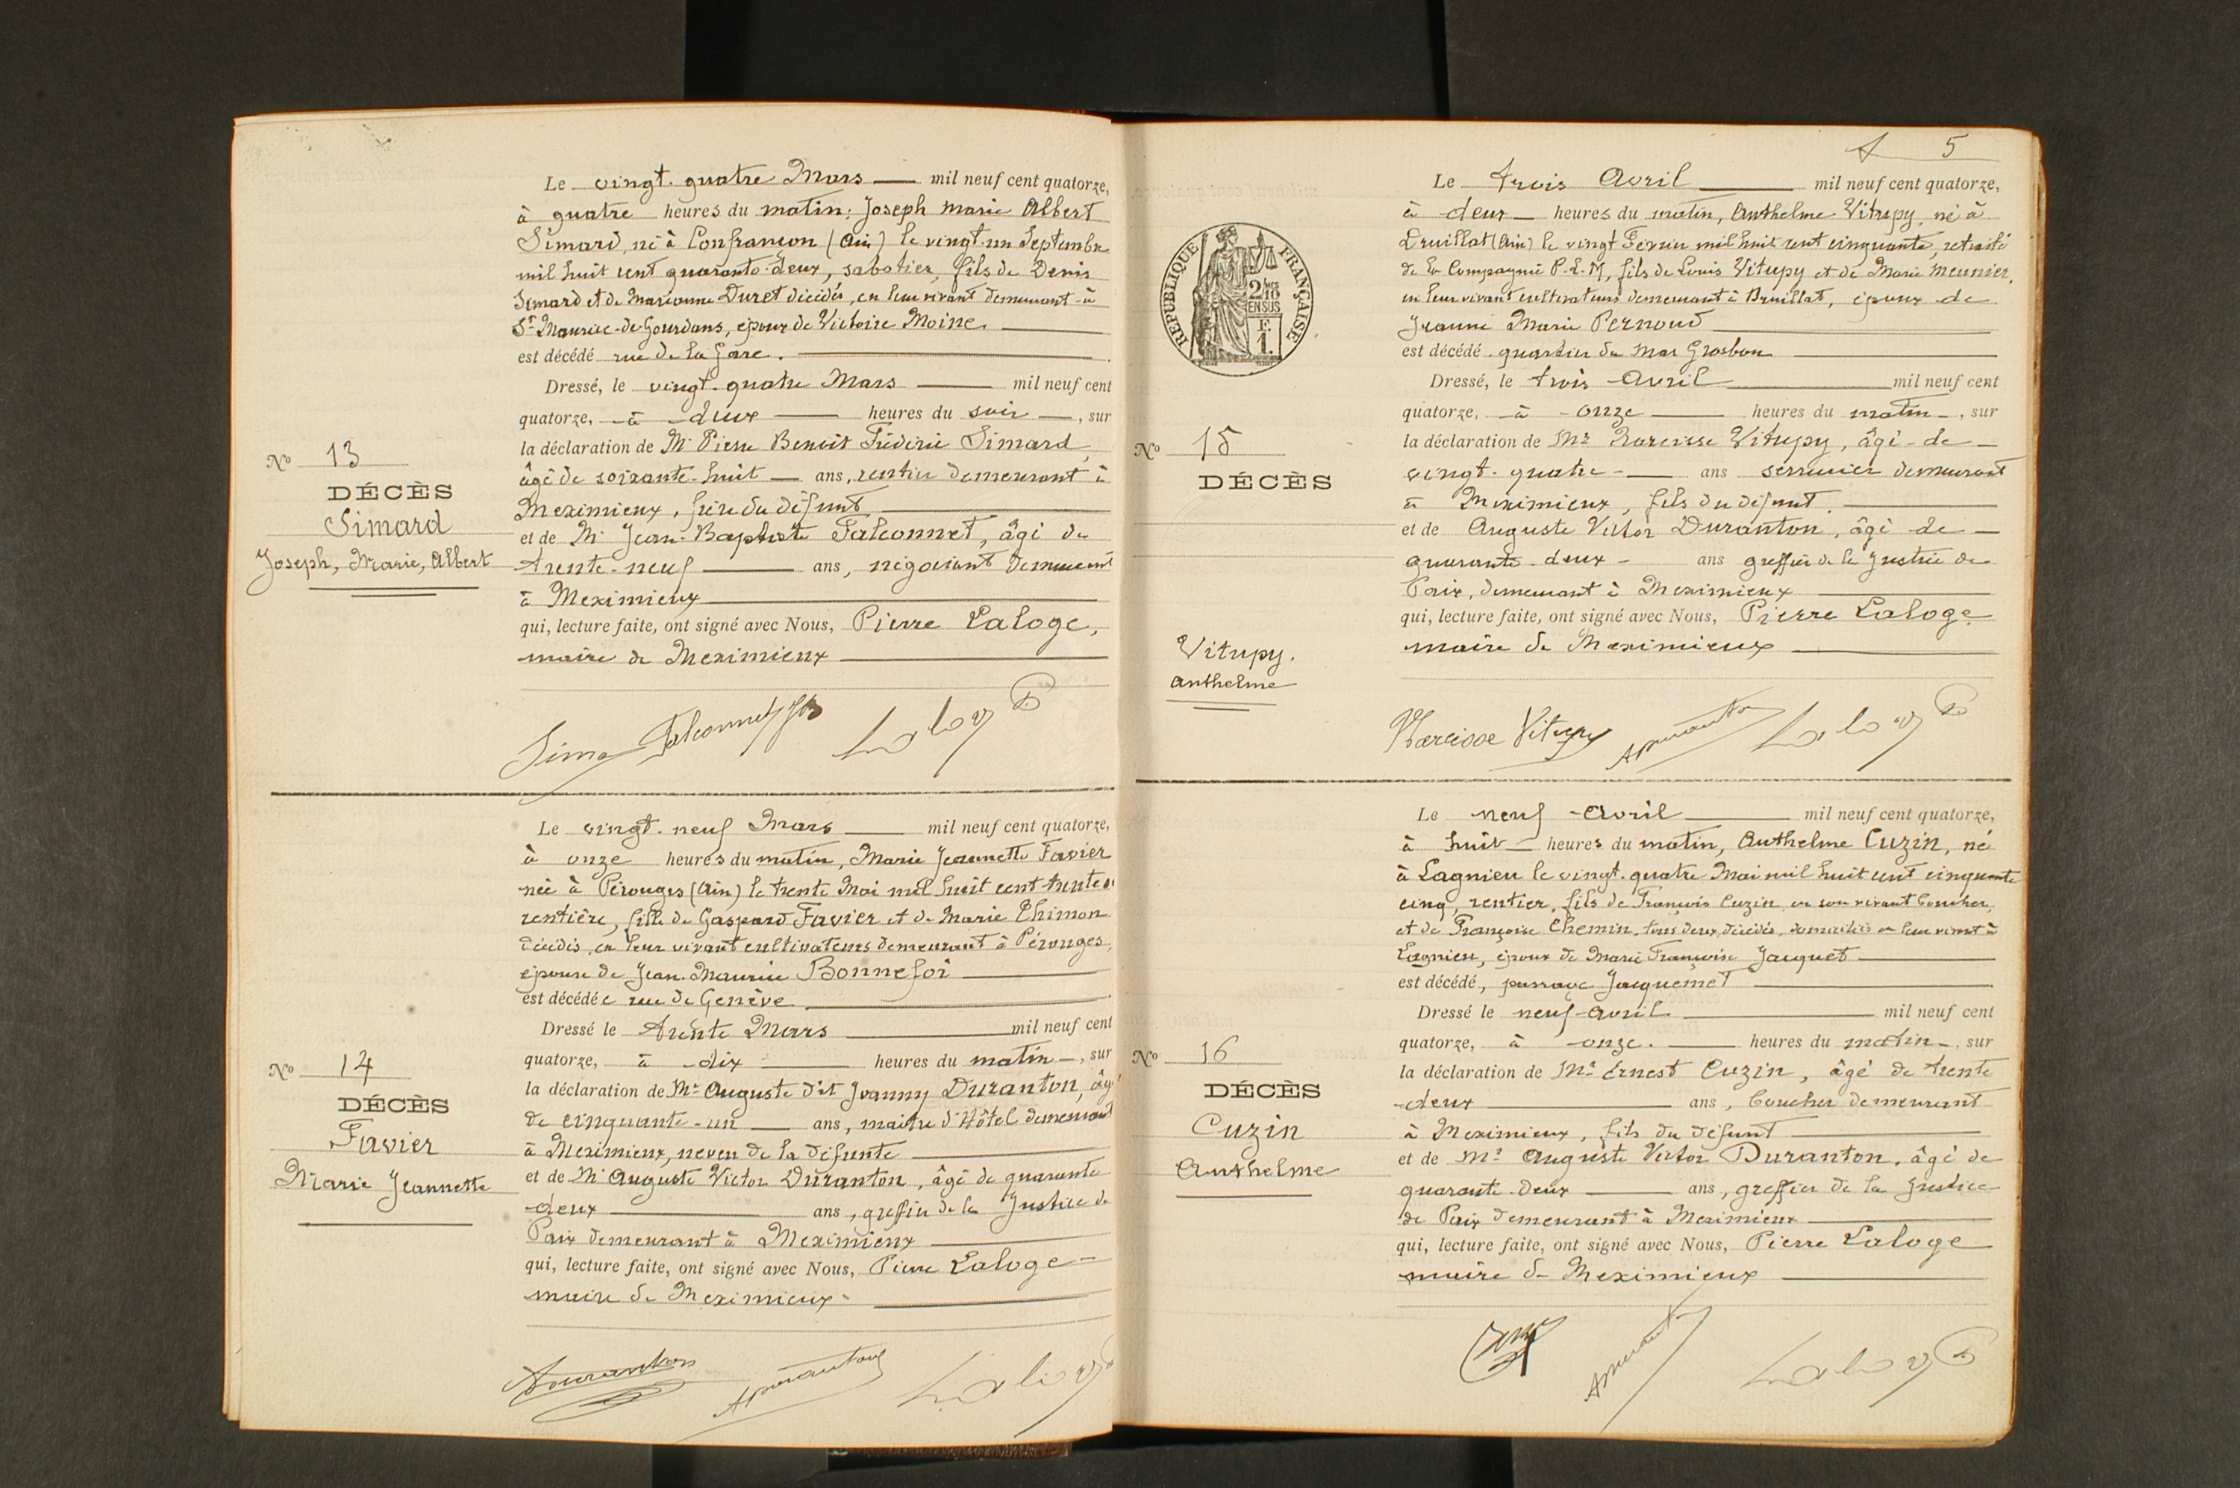 Le vingt-quatre Mars mil neuf cent quatorze,
à quatre heures du matin, Joseph Marie Albert
Simard, né à Confrançon (Ain) le vingt-un Septembre
mil huit cent quarante-deux, sabotier, fils de Denis
Simard et de Marianne Duret décédés, en leur vivant demeurant à
St Maurice-de-Gourdans, époux de Victoire Moine
est décédé rue de la Gare.
Dressé, le vingt-quatre Mars mil neuf cent
quatorze, à deux heures du soir, sur
la déclaration de Mr Pierre Benoit Frédéric Simard,
âgé de soixante-huit ans, rentier demeurant à
Meximieux, frère du défunt
et de Mr Jean-Baptiste Falconnet, âgé de
trente-neuf ans, négociant demeurant
à Meximieux
qui, lecture faite, ont signé avec Nous, Pierre Laloge,
maire de Meximieux
No 13
DÉCÈS
Simard
Joseph, Marie, Albert
Falconnet
Laloge
Le vingt-neuf Mars mil neuf cent quatorze,
à onze heures du matin, Marie Jeannette Favier
née à Pérouges (Ain) le trente Mai mil huit cent trente
rentière, fille de Gaspard Favier et de Marie Thimon
décédés, en leur vivant cultivateurs demeurant à Pérouges,
épouse de Jean-Maurice Bonnefoi
est décédée rue de Genève
Dressé le trente Mars mil neuf cent
quatorze, à dix heures du matin, sur
la déclaration de Mr Auguste dit Joanny Duranton, âgé
de cinquante-un ans, maître d'Hôtel demeurant
à Meximieux, neveu de la défunte
et de Mr Auguste Victor Duranton, âgé de quarante
deux ans, greffier de la Justice de
Paix demeurant à Meximieux
qui, lecture faite, ont signé avec Nous, Pierre Laloge
maire de Meximieux
No 14
DÉCÈS
Favier
Marie Jeannette
Duranton
A Duranton
Laloge
5
RÉPUBLIQUE FRANÇAISE
2/10
EN SUS
F.
1.
Le trois Avril mil neuf cent quatorze,
à deux heures du matin, Anthelme Vitupy, né à
Druillat (Ain) le vingt Février mil huit cent cinquante, retraité
de la Compagnie P.L.M, fils de Louis Vitupy et de Marie Meunier,
en leur vivant cultivateurs demeurant à Druillat, époux de
Jeanne Marie Pernoud
est décédé quartier du Mas Grosbon
Dressé, le trois Avril mil neuf cent
quatorze, à onze heures du matin, sur
la déclaration de Mr Narcisse Vitupy, âgé de
vingt-quatre ans serrurier demeurant
à Meximieux, fils du défunt.
et de Auguste Victor Duranton, âgé de
quarante-deux ans greffier de la Justice de
Paix, demeurant à Meximieux
qui, lecture faite, ont signé avec Nous, Pierre Laloge
maire de Meximieux
No 15
DÉCÈS
Vitupy.
Anthelme
Narcisse Vitupy
A Duranton
Laloge
Le neuf Avril mil neuf cent quatorze,
à huit heures du matin, Anthelme Cuzin, né
à Lagnieu le vingt-quatre Mai mil huit cent cinquante
cinq, rentier, fils de François Cuzin en son vivant boucher,
et de Françoise Chemin, tous deux décédés, domiciliés en leur vivant à
Lagnieu, époux de Marie Françoise Jacquet
est décédé, passage Jacquemet
Dressé le neuf Avril mil neuf cent
quatorze, à onze heures du matin, sur
la déclaration de Mr Ernest Cuzin, âgé de trente
deux ans, boucher demeurant
à Meximieux, fils du défunt
et de Mr Auguste Victor Duranton, âgé de
quarante-deux ans, greffier de la Justice
de Paix demeurant à Meximieux
qui, lecture faite, ont signé avec Nous, Pierre Laloge
maire de Meximieux
No 16
DÉCÈS
Cuzin
Anthelme
A Duranton
Laloge